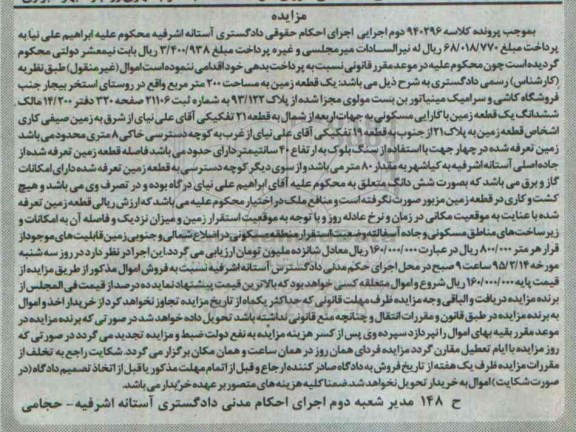 مزایده
بموجب پرونده کلاسه ۹۴۰۲۹۶ دوم اجرایی اجرای احکام حقوقی دادگستری آستانه اشرفیه محکوم علیه ابراهیم علی نیا به
پرداخت مبلغ ۶۸/۰۱۸/۷۷۰ ریال له نیر السادات میرمجلسی و غیره پرداخت مبلغ ۳/۴۰۰/۹۳۸ ریال بابت نیمعشر دولتی محکوم
گردیده است چون محکوم علیه در موعد مقرر قانونی نسبت به پرداخت بدهی خود اقدامی ننموده است اموال (غیر منقول) طبق نظریه
(کارشناس) رسمی دادگستری به شرح ذیل می باشد: یک قطعه زمین به مساحت ۲۰۰ متر مربع واقع در روستای استخر بیجار جنب
فروشگاه کاشی و سرامیک مینیاتور بن بست مولوی مجزا شده از پلاک ۹۳/۱۲۲ به شماره ثبت ۲۱۱۰۶ صفحه ۳۲۰ دفتر ۱۴/۲۰۰ مالک
ششدانگ یک قطعه زمین با کارایی مسکونی به جهات اربعه از شمال به قطعه ۲۱ تفکیکی آقای علی نیای از شرق به زمین صیفی کاری
اشخاص قطعه زمین به پلاک ۲۱ از جنوب به قطعه ۱۹ تفکیکی آقای علی نیای از غرب به کوچه دسترسی خاکی ۸ متری محدود می باشد
زمین تعرفه شده در چهار جهت با استفاده از سنگ بلوک به ارتفاع ۴۰ سانتیمتر دارای حدود می باشد فاصله قطعه زمین تعرفه شده از
جاده اصلی آستانه اشرفیه به کیاشهر به مقدار ۸۰ متر می باشد و از سوی دیگر کوچه دسترسی به قطعه زمین تعرفه شده دارای امکانات
گاز و برق می باشد که بصورت شش دانگ متعلق به محکوم علیه آقای ابراهیم علی نیای درگاه بوده و در تصرف وی می باشد و هیچ
کشت و کاری در قطعه زمین مزبور صورت نگرفته است و منافع ملک در اختیار محکوم علیه می باشد که ارزش ریالی قطعه زمین تعرفه
شده با عنایت به موقعیت مکانی در زمان و نرخ عادله روز و با توجه به موقعیت استقرار زمین و میزان نزدیک و فاصله آن به امکانات و
زیرساخت های مناطق مسکونی و جاده آسفالته وضعیت استقرار منطقه مسکونی در اضلاع شمالی و جنوبی زمین قابلیت های موجود از
قرار هر متر ۸۰۰/۰۰۰ ریال در عبارت ۱۶۰/۰۰۰/۰۰۰ ریال معادل شانزده ملیون تومان ارزیابی می گردد. این اجرا در نظر دارد در روز سه شنبه
مورخه ۹۵/۲/۱۴ ساعت ۹ صبح در محل اجرای حکم مدنی دادگستری آستانه اشرفیه نسبت به فروش اموال مذکور از طریق مزایده از
قیمت پایه ۱۶۰/۰۰۰/۰۰۰ ریال شروع و اموال متعلقه کسی خواهد بود که بالاترین قیمت پیشنهاد نماید ده درصد از قیمت فی المجلس از
برنده مزایده دریافت و الباقی وجه مزایده ظرف مهلت قانونی که حداکثر یکماه از تاریخ مزایده تجاوز نخواهد کرد از خریدار اخذ و اموال
به برنده مزایده در طبق قانون و مقررات انتقال و چنانچه منع قانونی نداشته باشد تحویل داده خواهد شد در صورتی که برنده مزایده در
موعد مقرر بقیه بهای اموال را نپردازد سپرده وی پس از کسر هزینه مزایده به نفع دولت ضبط و مزایده تجدید می گردد در صورتی که
روز مزایده با ایام تعطیل مقارن گردد مزایده فردای همان روز در همان ساعت و همان مکان برگزار می گردد. شکایت راجع به تخلف از
مقررات مزایده ظرف یک هفته از تاریخ فروش به دادگاه صادر کننده ارجاع و قبل از اتمام مهلت مذکور یا قبل از اتخاذ تصمیم دادگاه (در
صورت شکایت) اموال به خریدار تحویل نخواهد شد. ضمنا کلیه هزینه های متصور بر عهده خریدار می باشد.
ح ۱۴۸ مدیر شعبه دوم اجرای احکام مدنی دادگستری آستانه اشرفیه - حجامی